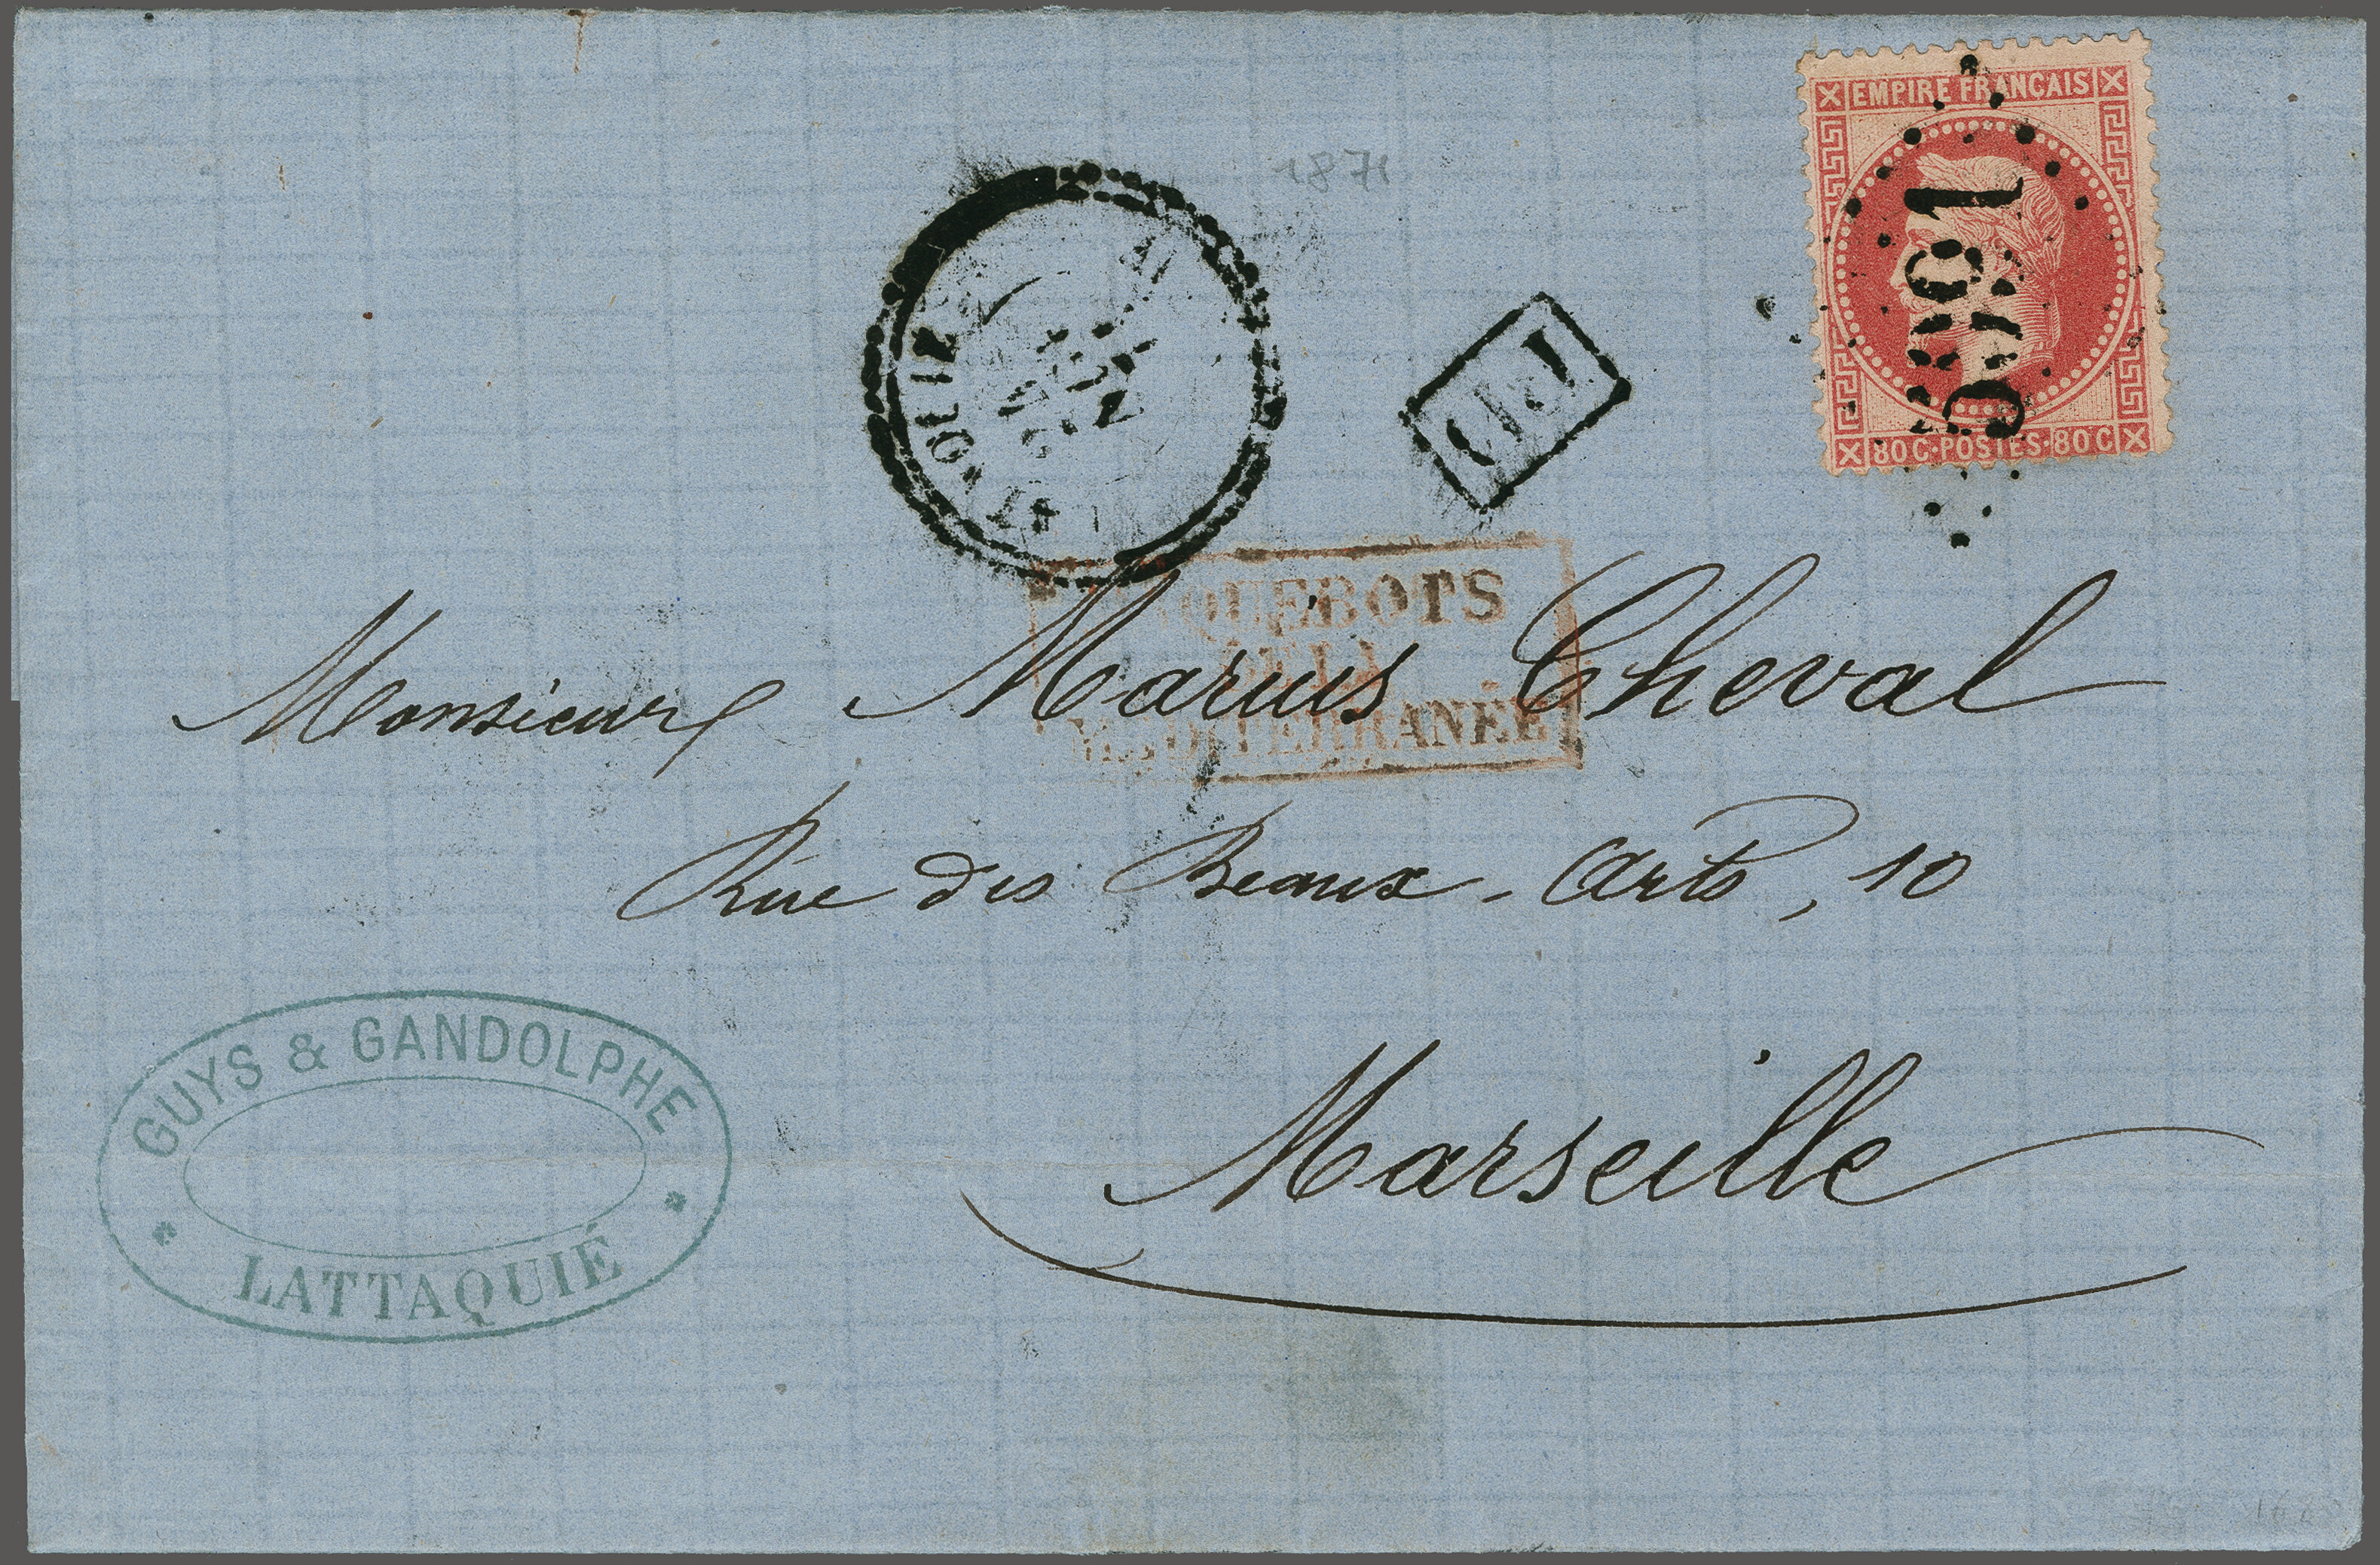 1871
EMPIRE FRANÇAIS
80 C · POSTES · 80 C
5091
PD
PAQUEBOTS
DE LA
MÉDITERRANÉE
Monsieur Marius Cheval
Rue des Beaux-Arts, 10
Marseille
GUYS & GANDOLPHE
LATTAQUIÉ